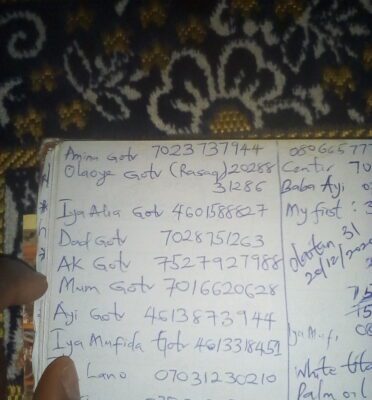 Amina Gotv 7023737944
Olaoye Gotv (Rasaq) 20288
31286
Iya Alia Gotv 4601588827
Dad Gotv 7028751263
AK Gotv 7527927988
Mum Gotv 7016620628
Ayi Gotv 4613873944
Iya Mufida Gotv 4613318451
Lano 07031230210
0806657
Center 70
Baba Ayi
My first : 3
31
20/12/202
Iya Muf
08
White
Palm oil